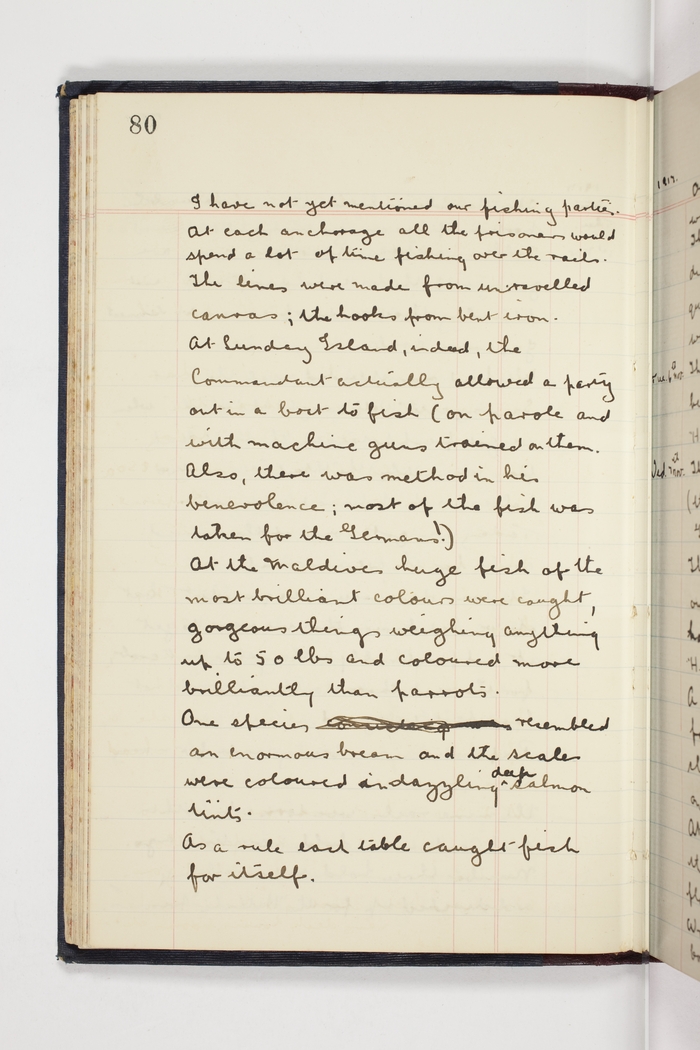 80
I have not yet mentioned our fishing parties.
At each anchorage all the prisoners would
spend a lot of time fishing over the rails.
The lines were made from unravelled
canvas; the hooks from bent iron.
At Sunday Island, indeed, the
Commandant actually allowed a party
out in a boat to fish (on parole and
with machine guns trained on them.
Also, there was method in his
benevolence; most of the fish was
taken for the Germans!)
At the Maldives huge fish of the
most brilliant colours were caught,
gorgeous things weighing anything
up to 50 lbs and coloured more
brilliantly than parrots.
One species resembled
an enormous bream and the scales
were coloured in dazzling deep salmon
tints.
As a rule each table caught fish
for itself.
1917.